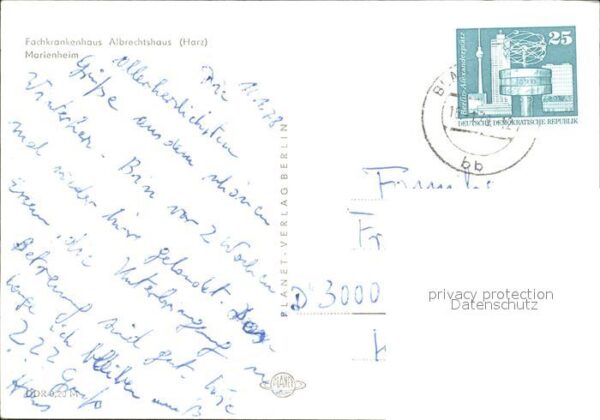 Fachkrankenhaus Albrechtshaus (Harz)
Marienheim
Die 11.1.78
Allerherzlichsten
Grüße aus dem schönen
Winterharz. Bin vor 2 Wochen
mal wieder hier gelandet.
Essen, die Unterbringung u.
Betreuung sind gut. Wie
lange ich bleiben muß
? ? ? Gruß
Hans
DDR 0,20 M
PLANET-VERLAG BERLIN
PLANET
25
Berlin, Alexanderplatz
DEUTSCHE DEMOKRATISCHE REPUBLIK
bb
Familie
Fr
D 3000
privacy protection
Datenschutz